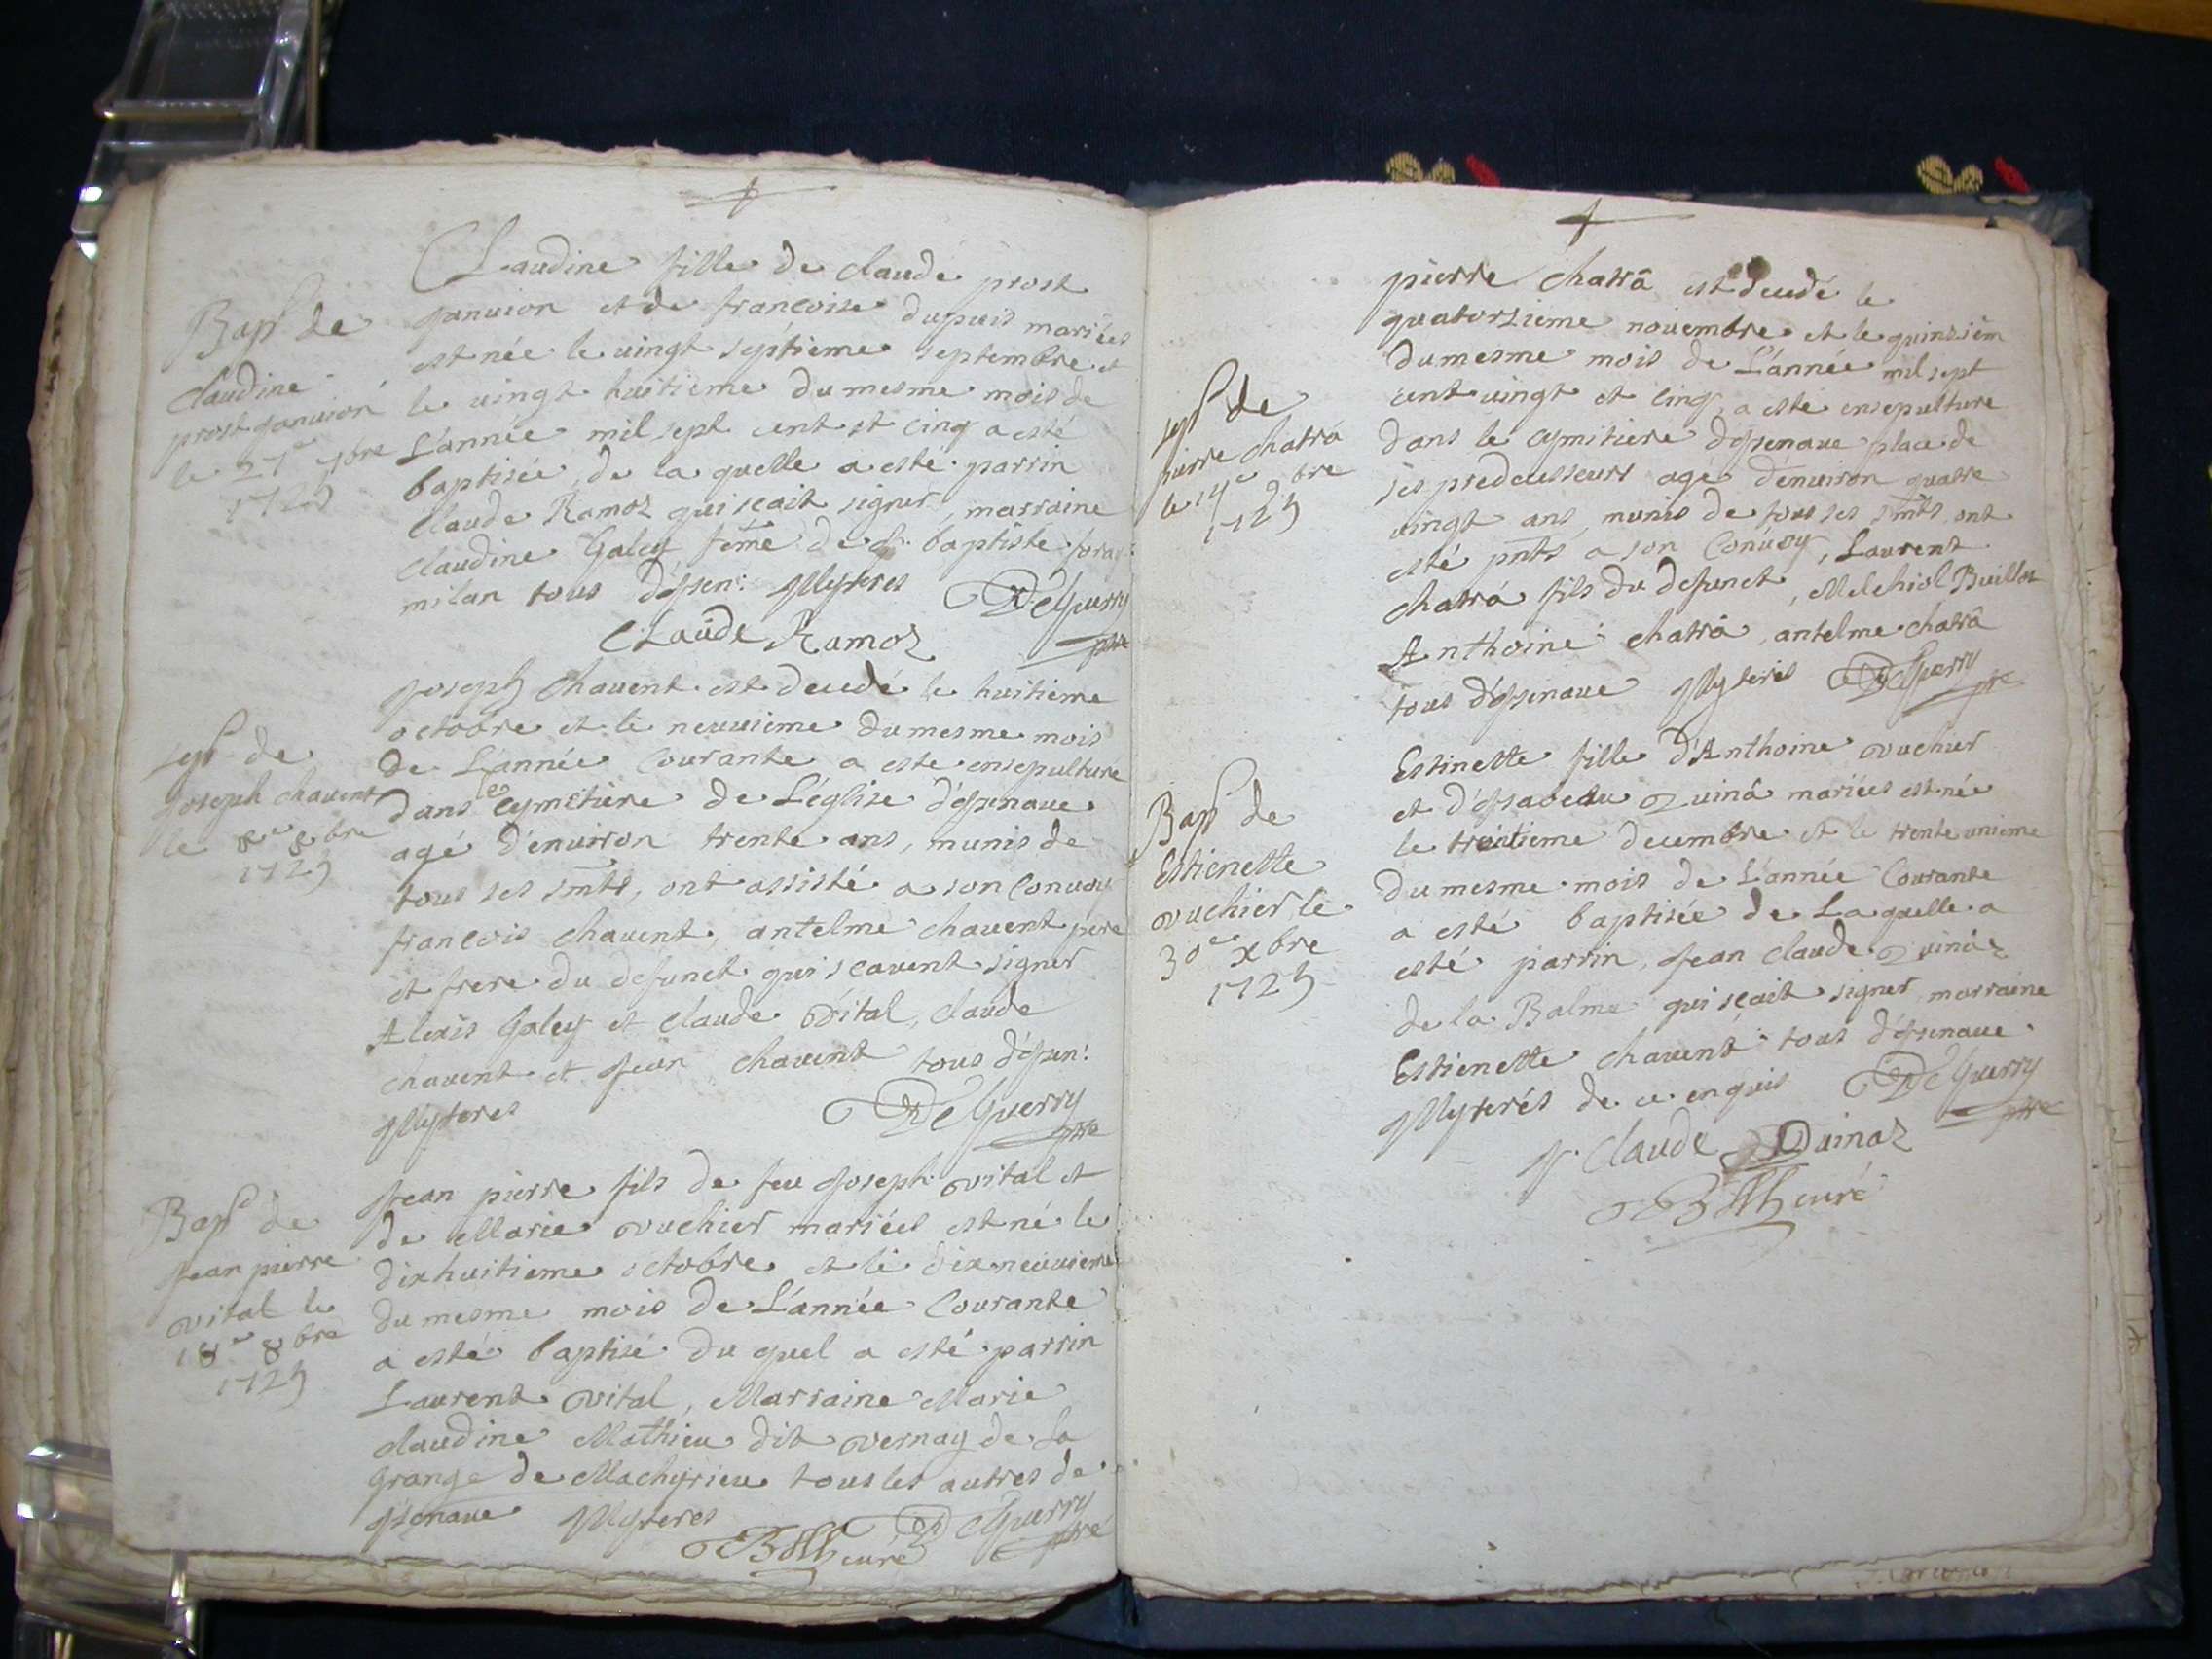 Claudine fille de claude prost
Janvion et de francoise dupuis mariées
est née le vingt septieme septembre et
le vingt huitieme du mesme mois de
L'année mil sept cent et cinq a esté
baptisée, de la quelle a esté parrin
Claude Ramoz qui sçait signer, marraine
Claudine Galey féme de Jn baptiste
milan tous d'Isen: Illyteres DeGuerry
ptre
CLaude Ramoz
Bapt de
Claudine
prost Janvion
le 27e 7bre
1725
Joseph Chavent est decedé le huitieme
octobre et le neuvieme du mesme mois
de L'année Courante a esté ensepulturé
dans le Cymetiere de L'église d'Isenave
agé d'environ trente ans, munis de
tous ses smts, ont assisté a son Convoy
francois Chavent, antelme Chavent pere
et frere du defunct qui scavent signer
Alexis Galey et Claude Vital, Claude
Chavent et Jean Chavent tous d'Isen:
Illyteres DeGuerry
ptre
sept de
Joseph Chavent
le 8e 8bre
1725
Jean pierre fils de feu Joseph Vital et
de Marie Vuchier mariées est né le
dixhuitieme octobre et le dixneuvieme
du mesme mois de L'année Courante
a esté baptisé du quel a esté parrin
Laurent Vital, Marraine Marie
Claudine Mathieu dit Vernay de la
Grange de Machyrieu tous les autres de
Isenave Illyteres DeGuerry
ptre
curé
Bapt de
Jean pierre
Vital le
18e 8bre
1725
pierre Chatrâ est decedé le
quatorsieme novembre et le quinsiem
du mesme mois de L'année mil sept
cent vingt et cinq, a esté ensepulturé
dans le Cymitiere d'Isenave place de
ses predecesseurs agé d'environ quatre
vingt ans, munis de tous ses smts ont
esté pnts a son Convoy, Laurent
Chatrâ fils du defunct, Melchiol Buillot
Anthoine Chatrâ, antelme Chatrâ
tous d'Isenave Illyteres DeGuerry
ptre
sept de
pierre Chatrâ
le 14e 9bre
1725
Estinette fille d'Anthoine Vuchier
et d'Isabeau Quinâ mariées est née
le trentieme decembre et le trente unieme
du mesme mois de L'année Courante
a esté baptisée de La quelle a
esté parrin, Jean Claude Quinâ
de la Balme qui sçait signer marraine
Estienette Chavent tous d'Isenave
Illyterés de ce enquis DeGuerry
ptre
J. Claude Quinaz
curé
Bapt de
Estienette
Vuchier le
30e Xbre
1725